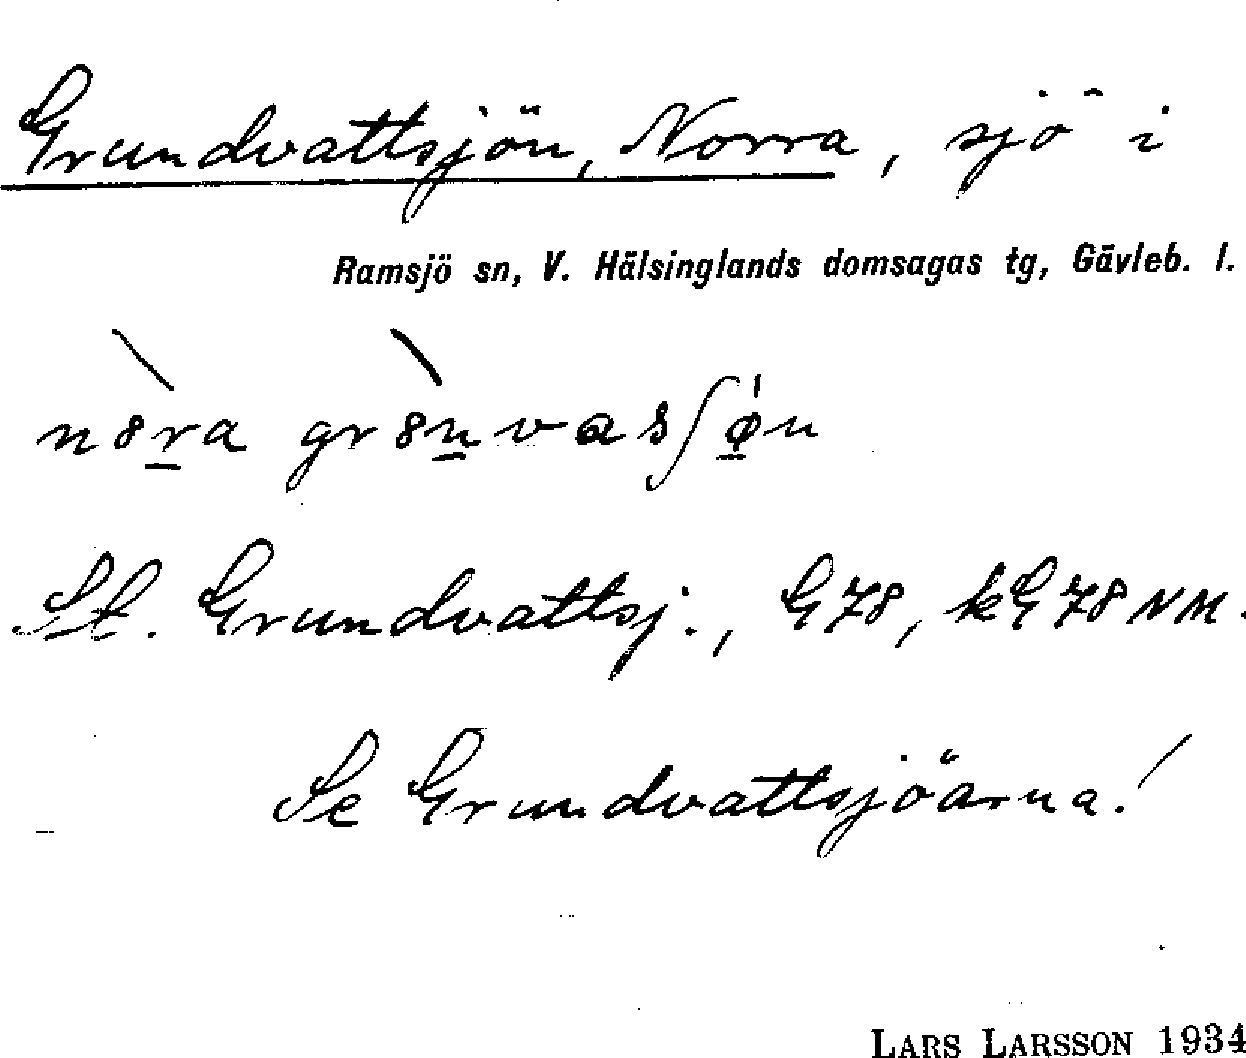 Grundvattsjön, Norra, sjö i
Ramsjö sn, V. Hälsinglands domsagas tg, Gävleb. l.
nòra grònvasʃǿn
St. Grundvattsj., G78, kG78 NM.
Se Grundvattsjöarna!
LARS LARSSON 1934